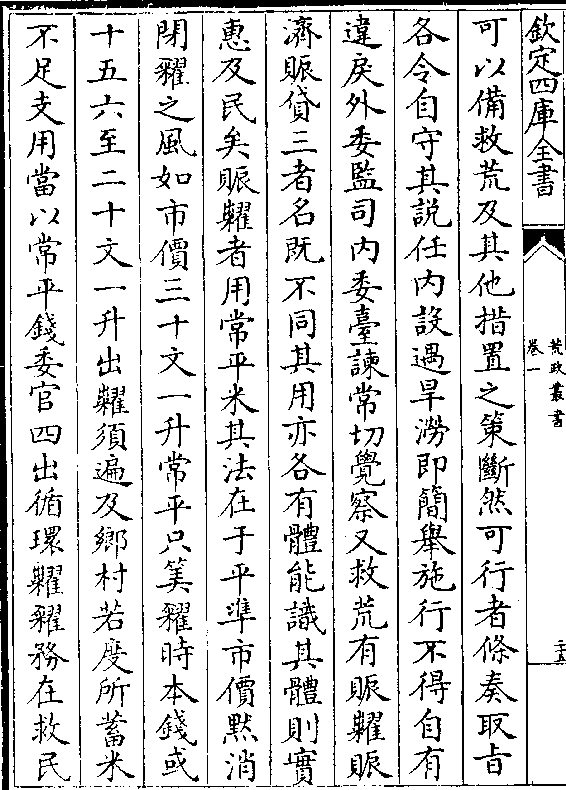 欽定四庫全書
荒政叢書
卷一
二十五
可以備救荒及其他措置之策斷然可行者條奏取旨
各令自守其説任内設遇旱澇即簡舉施行不得自有
違戾外委監司内委臺諫常切覺察又救荒有賑糶賑
濟賑貸三者名既不同其用亦各有體能識其體則實
惠及民矣賑糶者用常平米其法在于平準市價黙消
閉糴之風如市價三十文一升常平只筭糴時本錢或
十五六至二十文一升出糶須遍及鄉村若度所蓄米
不足支用當以常平錢委官四出循環糶糴務在救民